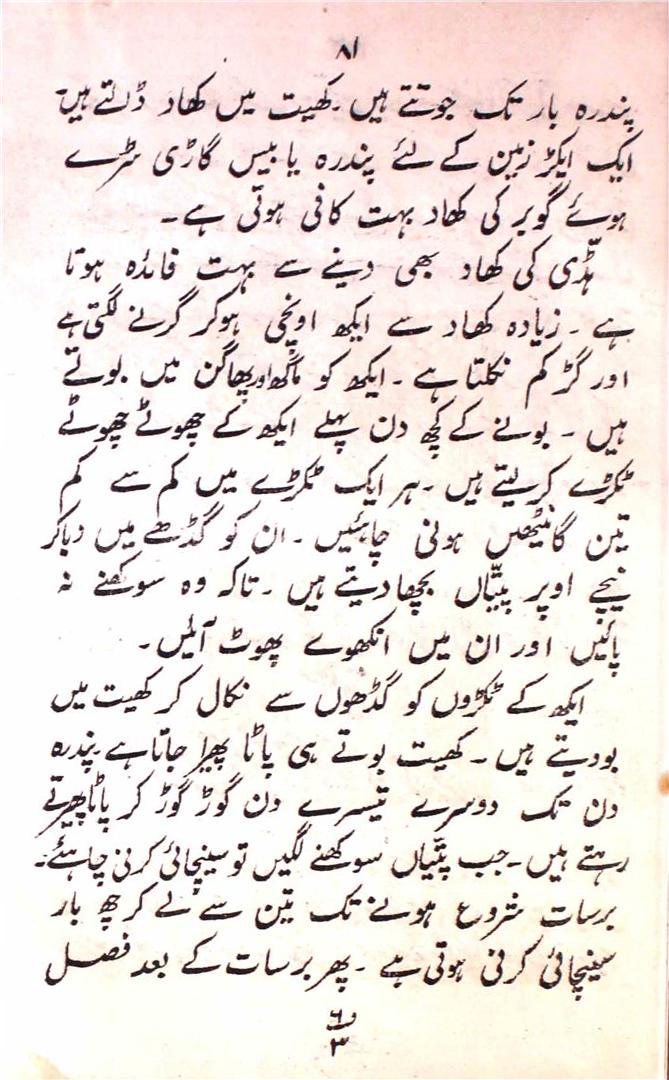 ۸۱
پندرہ بار تک جوتتے ہیں ۔ کھیت میں کھاد ڈلتے ہیں۔
ایک ایکڑ زمین کے لئے پندرہ یا بیس گاڑی سڑے
ہوئے گوبر کی کھاد بہت کافی ہوتی ہے۔
ہڈّی کی کھاد بھی دینے سے بہت فائدہ ہوتا
ہے ۔ زیادہ کھاد سے ایکھ اونچی ہوکر گرنے لگتی ہے
اور گڑ کم نکلتا ہے ۔ ایکھ کو ماگھ اور پھاگن میں بوتے
ہیں ۔ بونے کے کچھ دن پہلے ایکھ کے چھوٹے چھوٹے
ٹکڑے کر لیتے ہیں ۔ ہر ایک ٹکڑے میں کم سے کم
تین گانٹھیں ہونی چاہئیں ۔ ان کو گڈھے میں دباکر
نیچے اوپر پتیّاں بچھا دیتے ہیں ۔ تاکہ وہ سوکھنے نہ
پائیں اور ان میں انکھوے پھوٹ آئیں۔
ایکھ کے ٹکڑوں کو گڈھوں سے نکال کر کھیت میں
بو دیتے ہیں ۔ کھیت بوتے ہی پاٹا پھیرا جاتا ہے پندرہ
دن تک دوسرے تیسرے دن گوڑ گوڑ کر پاٹا پھیرتے
رہتے ہیں ۔ جب پتیّاں سوکھنے لگیں تو سینچائی کرنی چاہئے۔
برسات شروع ہونے تک تین سے لے کر چھ بار
سینچائی کرنی ہوتی ہے ۔ پھر برسات کے بعد فصل
۳